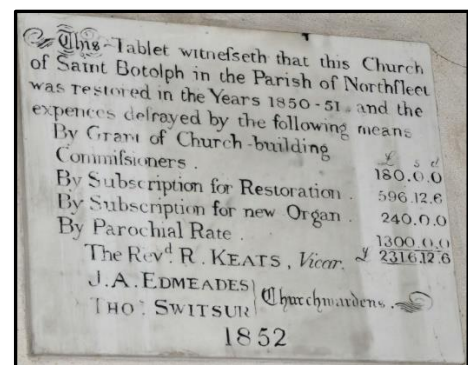 This Tablet witnefseth that this Church
of Saint Botolph in the Parish of Northfleet
was restored in the Years 1850-51 and the
expences defrayed by the following means
By Grant of Church-building
£ s d
Commifsioners . 180.0.0
By Subscription for Restoration . 596.12.6
By Subscription for new Organ . 240.0.0
By Parochial Rate . 1300.0.0
The Revd. R. KEATS, Vicar. £ 2316.12.6
J.A. EDMEADES
Churchwardens.
THOs. SWITSUR
1852